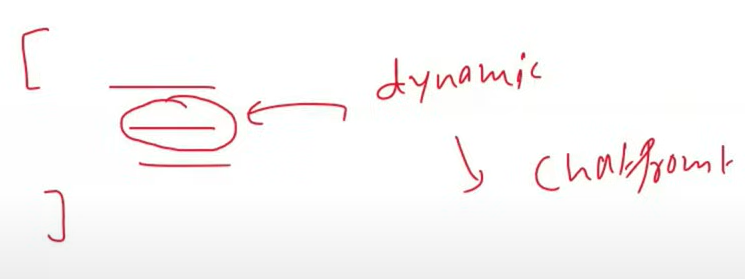 [
dynamic
Chatpromt
]